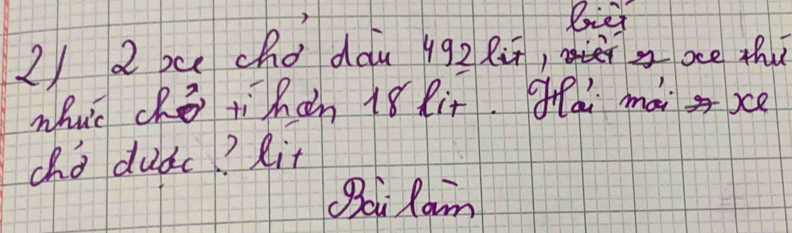 biết
2) 2 xe chở dầu 492 lít, xe thứ
nhức chở ít hơn 18 lít. Hỏi mỗi xe
chở được ? lít
Bài làm